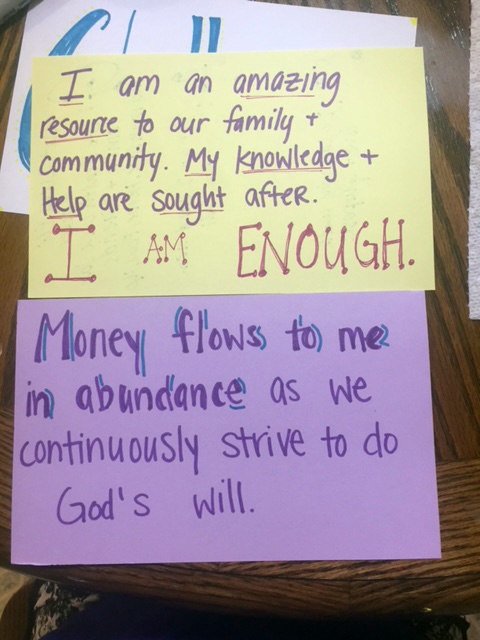 I am an amazing
resource to our family +
community. My knowledge +
Help are sought after.
I AM ENOUGH.
Money flows to me
in abundance as we
continuously strive to do
God's will.